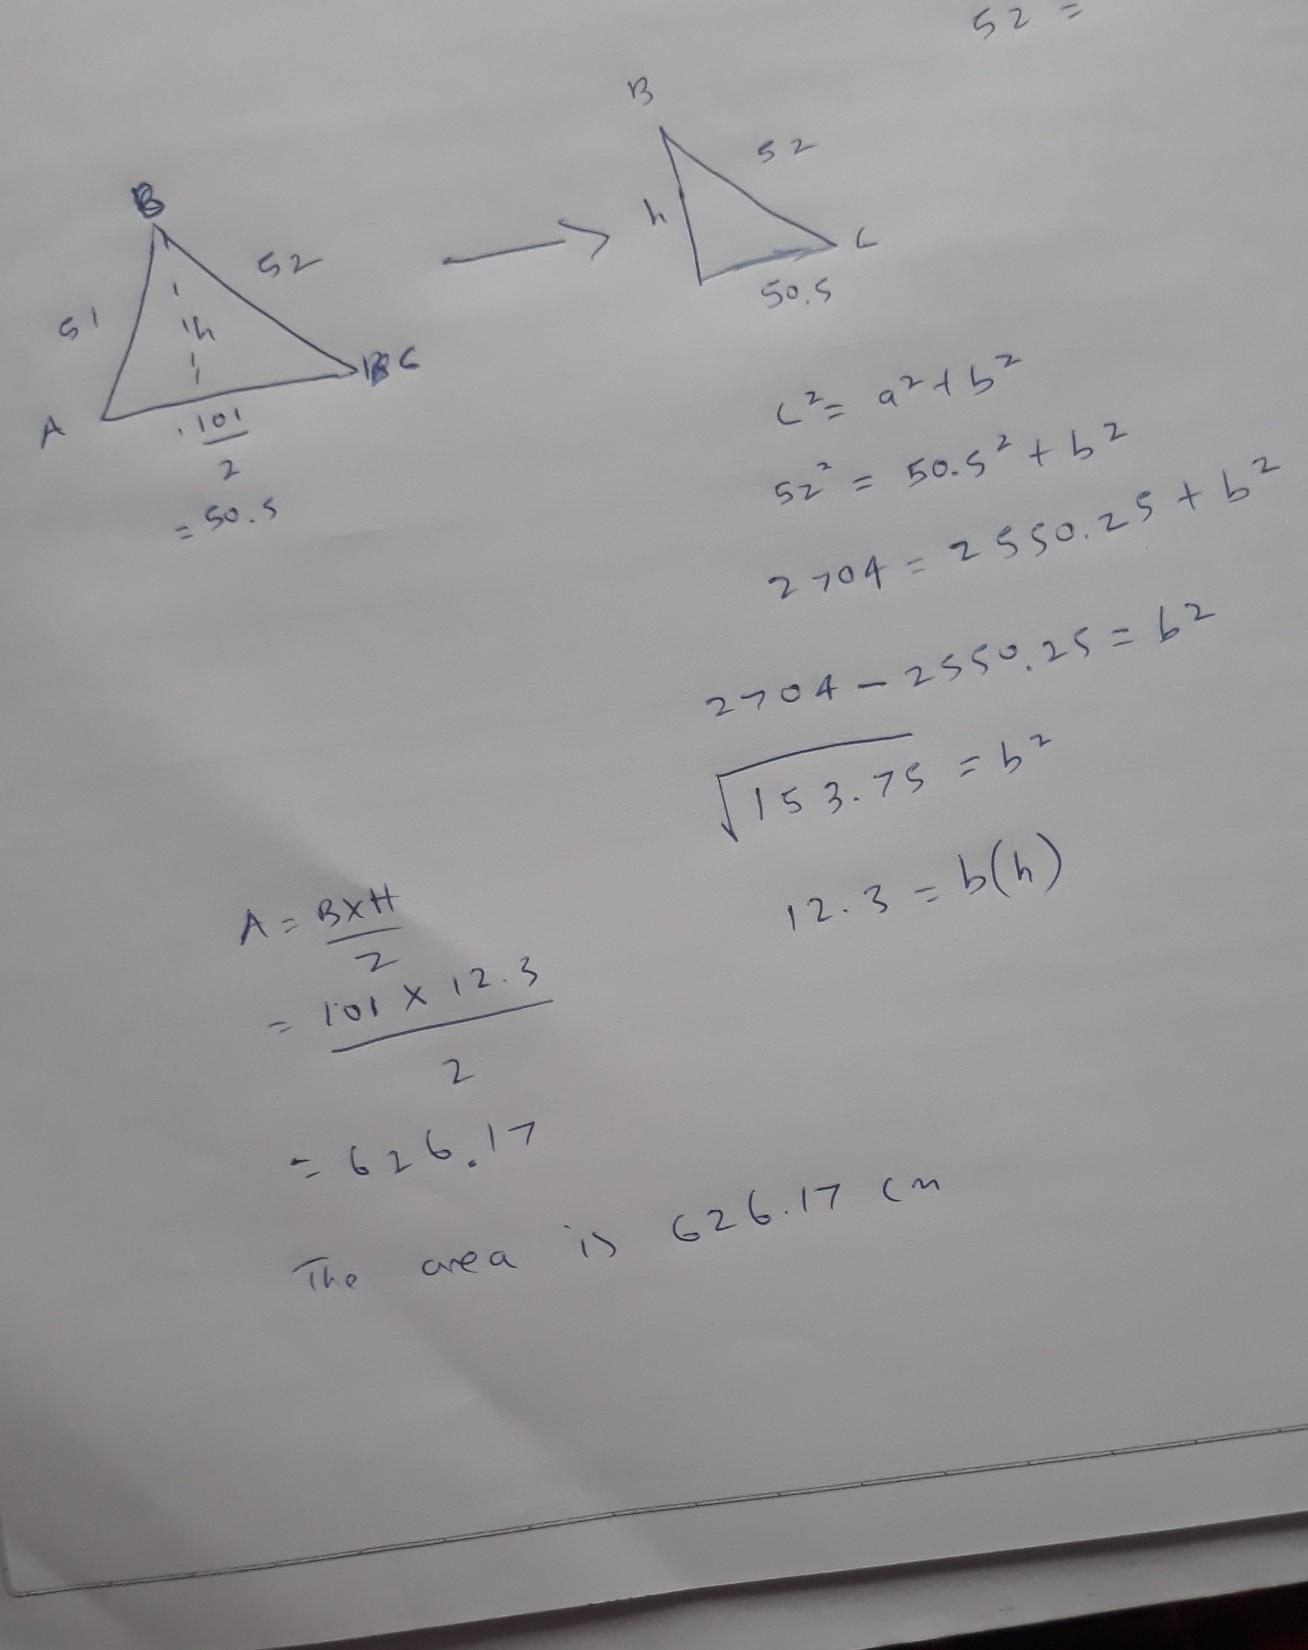 52 =
B
52
h
C
50.5
B
52
51
h
A
C
101
2
= 50.5
c² = a² + b²
52² = 50.5² + b²
2704 = 2550.25 + b²
2704 - 2550.25 = b²
√153.75 = b²
12.3 = b(h)
A = B×H
2
= 101 × 12.3
2
= 626.17
The area is 626.17 cm